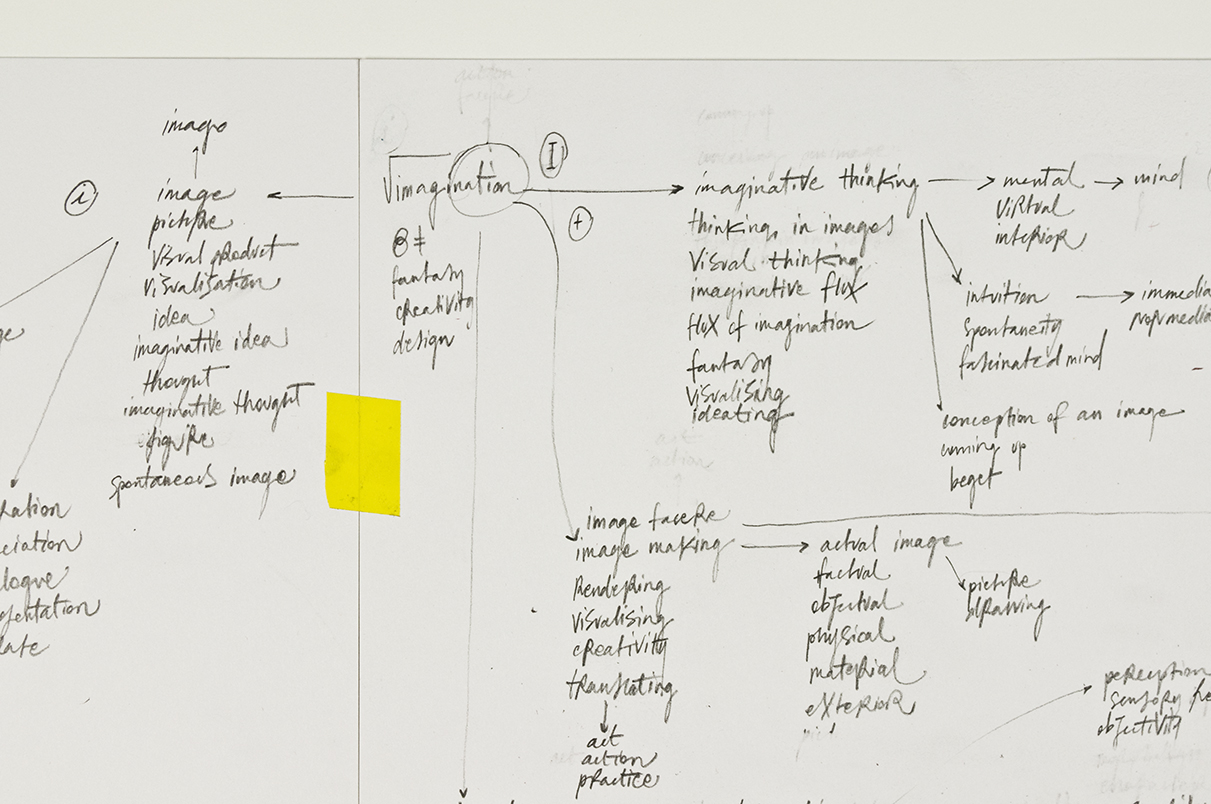 imago
i
image
picture
visual product
visualisation
idea
imaginative idea
thought
imaginative thought
figure
spontaneous image
action
I
imagination
≠
fantasy
creativity
design
+
imaginative thinking
thinking in images
visual thinking
imaginative flux
flux of imagination
fantasy
visualising
ideating
mental
virtual
interior
mind
intuition
spontaneity
fascinated mind
immedia
conception of an image
coming up
beget
act
action
image facere
image making
rendering
visualising
creativity
translating
act
action
practice
actual image
factual
objectual
physical
material
exterior
picture
drawing
perception
sensory
objectivity